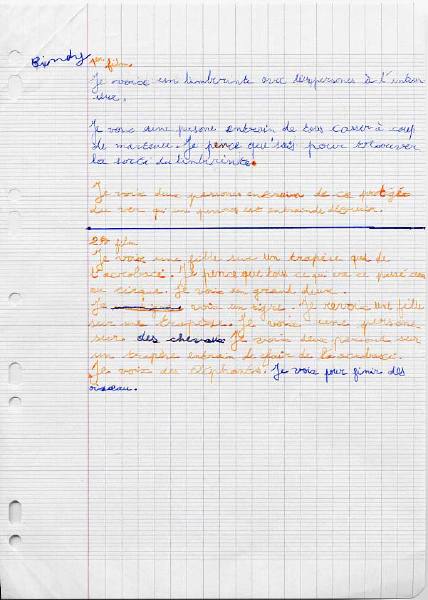 Cindy 1er film.
Je voix un limberinte avec des persones à l'inter
ieur.
Je vois une persone entrain de tous casser à coup
de marteau. Je pence que s'ait pour trouver
la sortie du limberinte.
Je voix deux persones entrain de ce protégé
du ver qu'une persone est entrain de
2e film
Je voix une fille sur un trapèse qui de
l'acrobacie. Je pence que tous ce qui va ce passé au
au cirque. Je voix en grand deux.
Je voix un tigre. Je revoix une fille
sur une trapèse. Je voix une persone
sur des chevaux Je voix deux persone sur
un trapèse entrain de fair de l'acrobace.
Je voix des éléphants. Je voix pour finir des
oiseau.